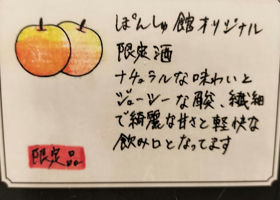 ぽんしゅ館オリジナル
限定酒
ナチュラルな味わいと
ジューシーな酸、繊細
で綺麗な甘さと軽快な
飲み口となってます
限定品